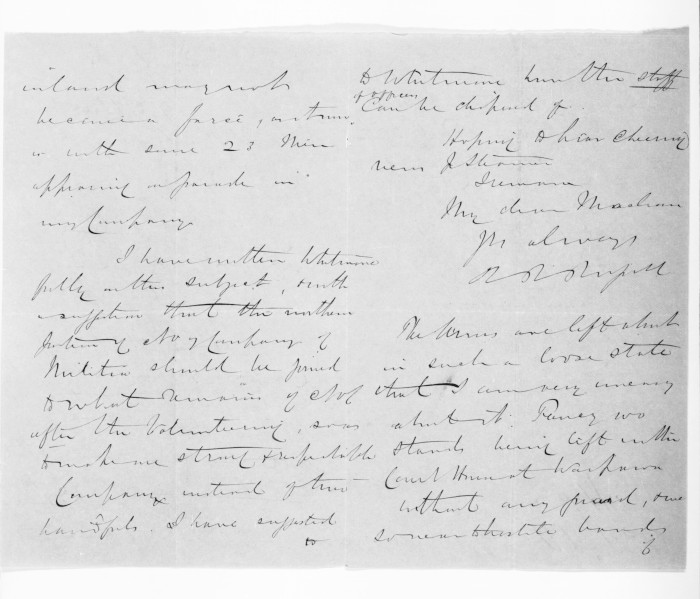 inland may not
become a farce, as it now
is with some 23 Men
appearing on parade in
my Company.
I have written Whitmore
fully on this subject, with
a suggestion that the northern
portion of No 7 Company of
Militia should be joined
to what remains of No 1
after the Volunteering, so as
to make one strong & respectable
Company instead of two
handfuls. I have suggested
to
to Whitmore how the staff
of officers
can be disposed of.
Hoping to hear cheering
news J Steamer
I remain
My dear Maclean
Yrs always
The Arms are left about
in such a loose state
that I am very uneasy
about it. Fancy two
stands being left in the
Court House at Waipawa
without any guard, &
so near hostile bands
if